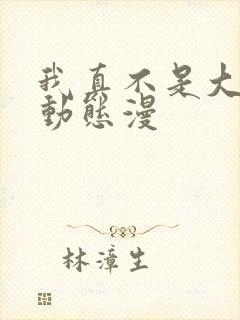 我真不是大
動態漫
林漳生